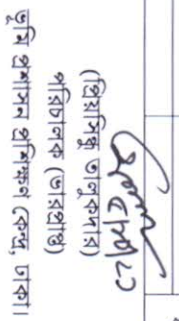 (প্রিয়সিন্ধু তালুকদার)
পরিচালক (ভারপ্রাপ্ত)
ভূমি প্রশাসন প্রশিক্ষণ কেন্দ্র, ঢাকা।